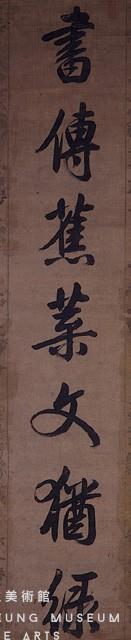 書傳蕉葉文猶綠
美術館
EUNG MUSEUM
E ARTS